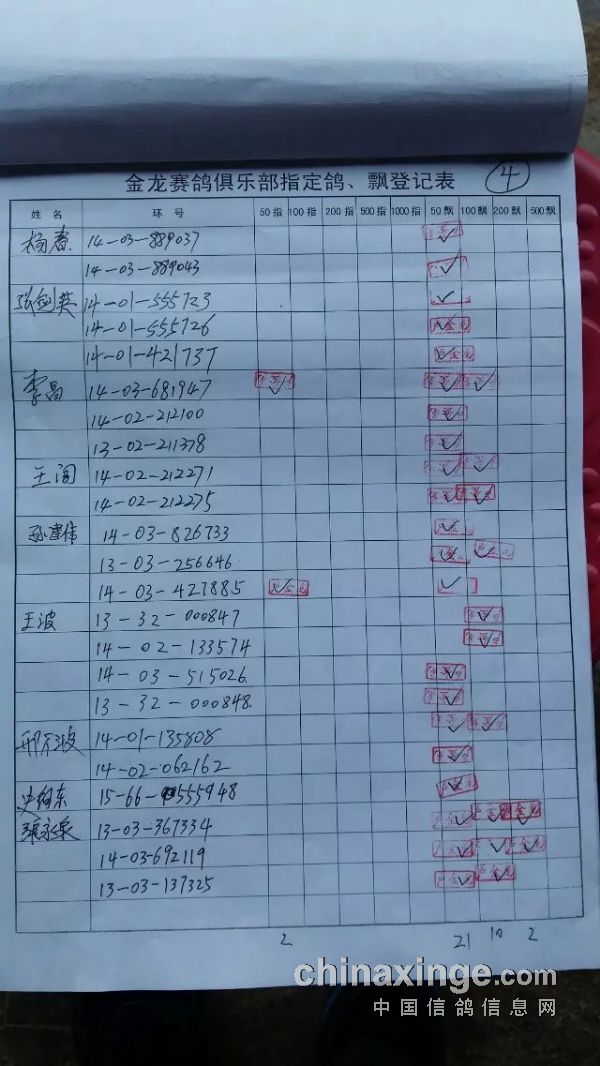 金龙赛鸽俱乐部指定鸽、飘登记表 4
姓名 环号 50指 100指 200指 500指 1000指 50飘 100飘 200飘 500飘
杨春 14-03-889037
14-03-889043
张剑英 14-01-555723
14-01-555726
14-01-421737
李昌 14-03-681947
14-02-212100
13-02-211378
王阔 14-02-212271
14-02-212275
孙建伟 14-03-826733
13-03-256646
14-03-427885
王波 13-32-000847
14-02-133574
14-03-515026
13-32-000848
14-01-135808
14-02-062162
15-66-555948
张永泉 13-03-367334
14-03-692119
13-03-137325
2 21 10 2
chinaxinge.com
中国信鸽信息网